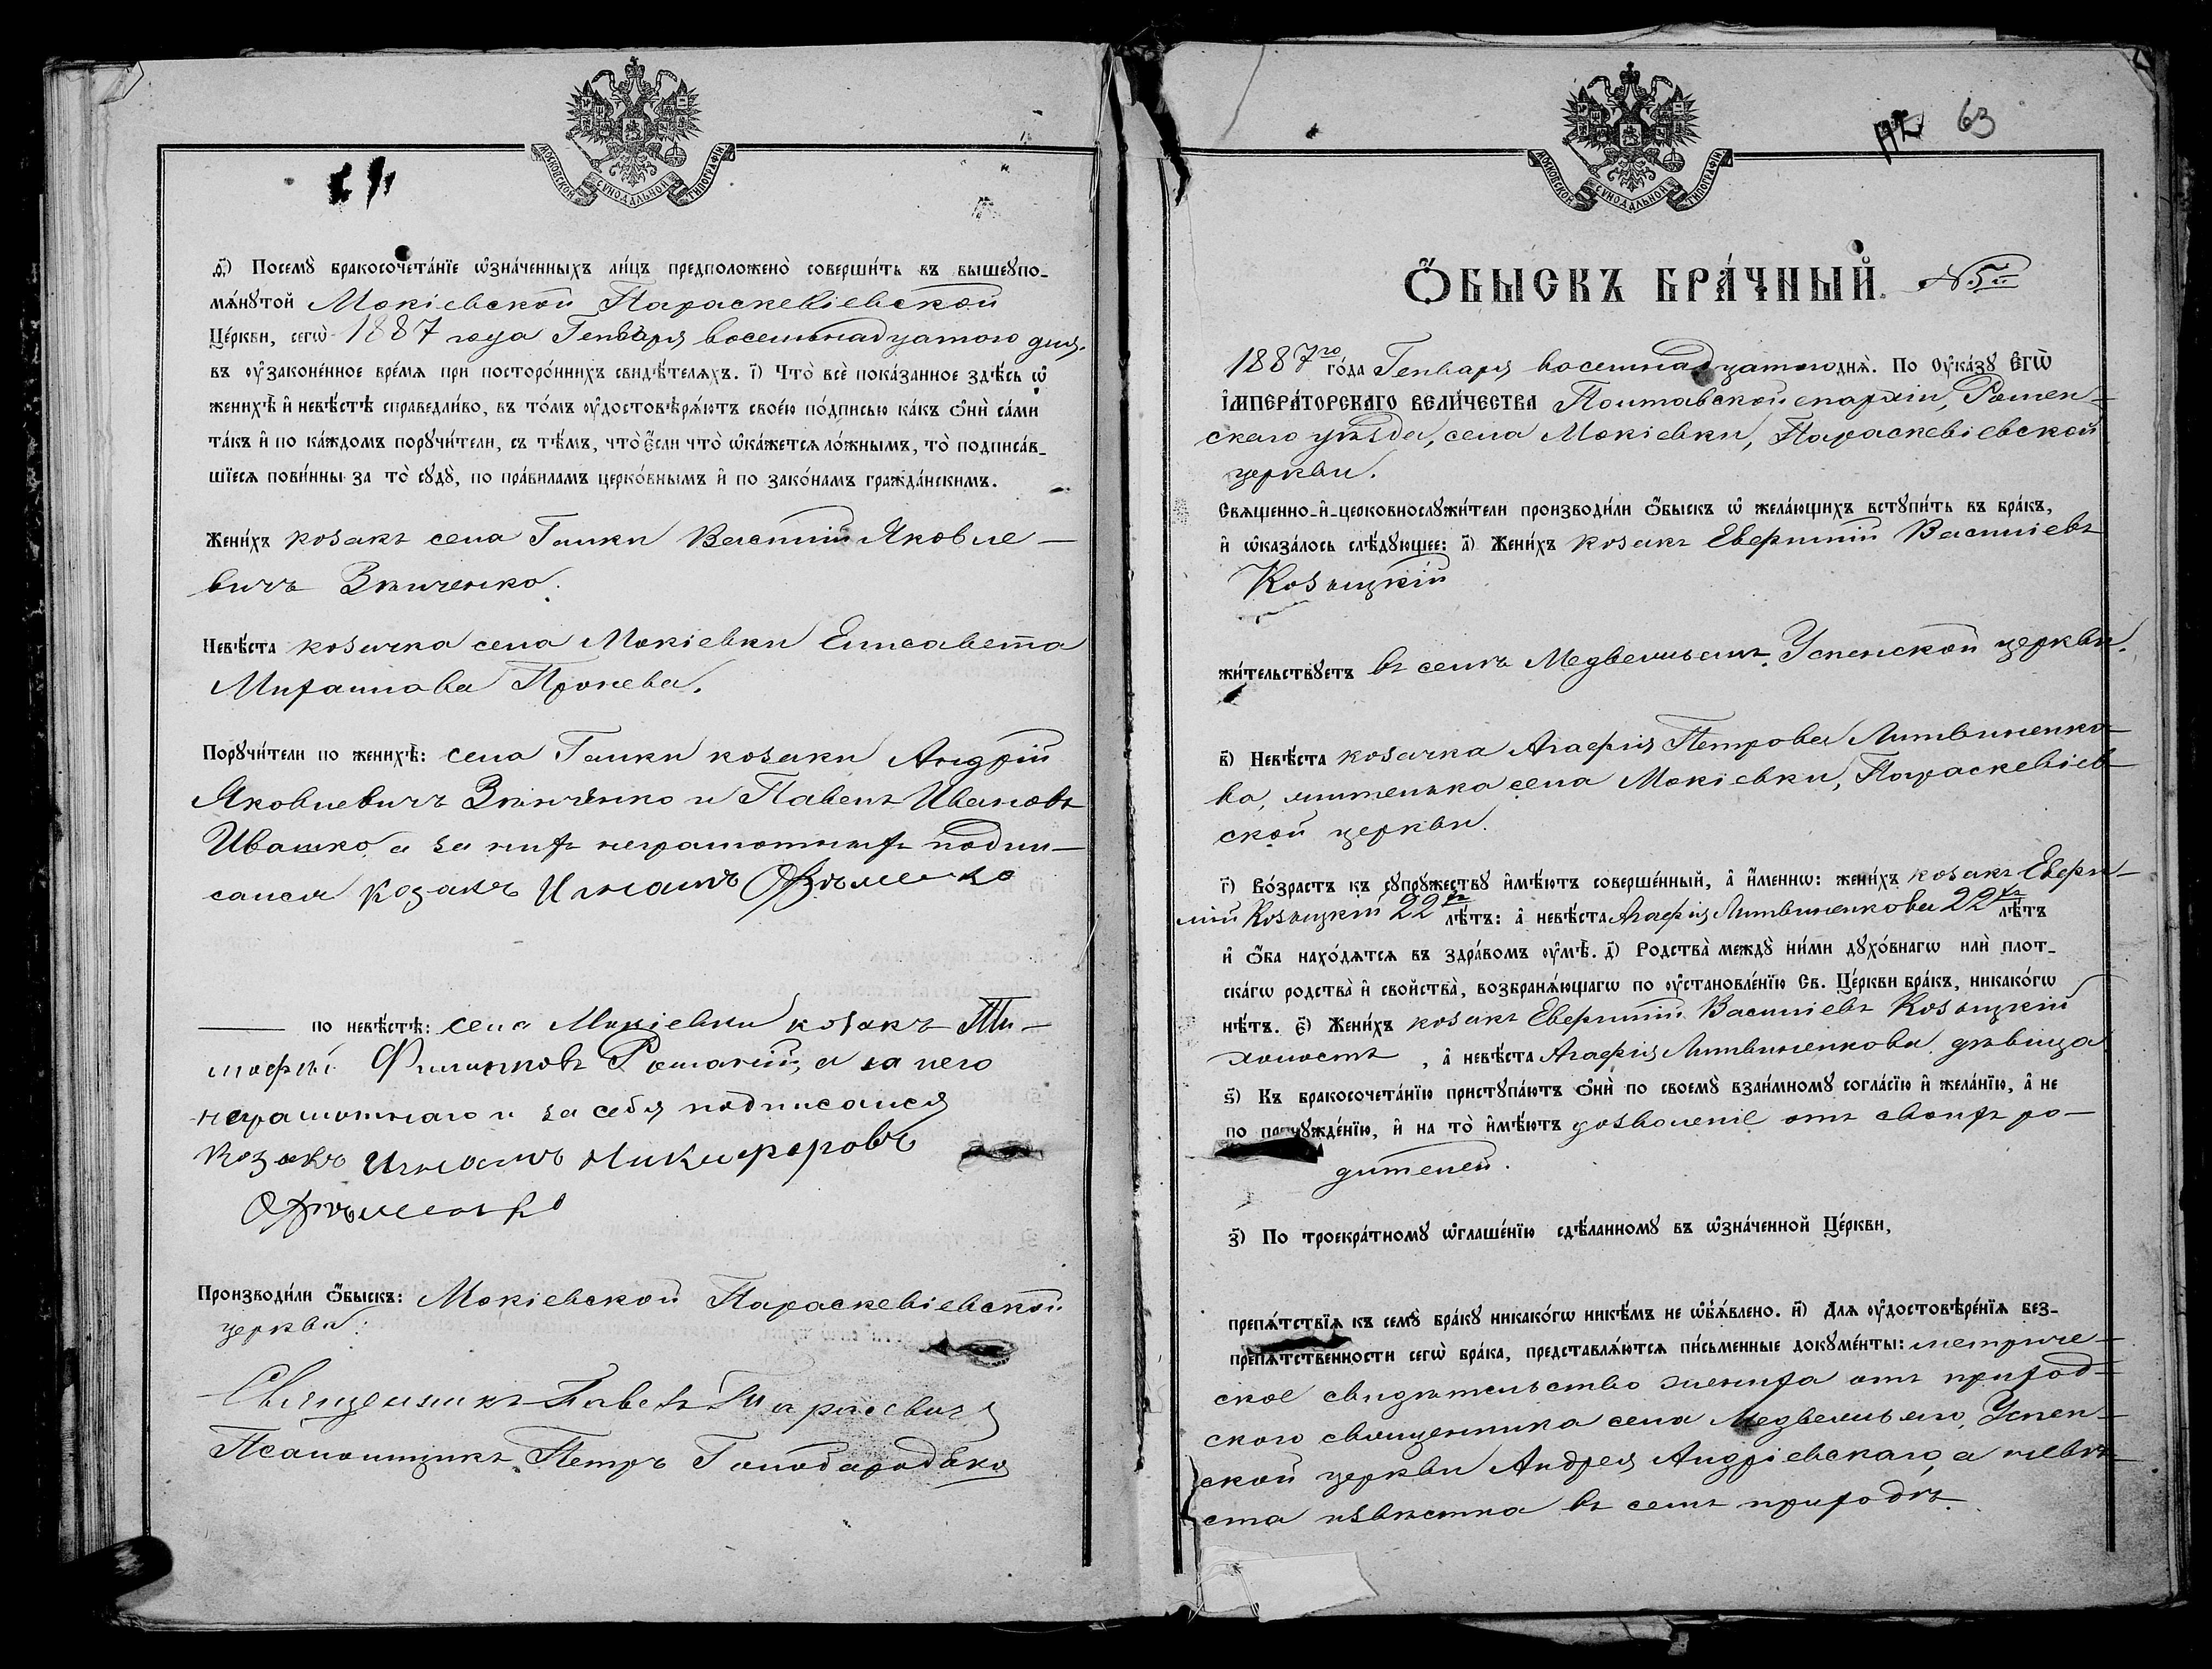 МОСКОВСКОЙ СѴНОДАЛЬНОЙ ТИПОГРАФІИ
ѳ҃) Посемꙋ̀ бракосочета́нїе ѡ҆зна́ченныхъ ли́цъ предположено̀ соверши́ть въ вышеꙋпо-
мѧ́нꙋтой Мокіевской Параскевіевской
Це́ркви, сегѡ̀ 1887 года Генваря восемнадцатого дня.
въ ᲂу҆законе́нное вре́мѧ при посторо́ннихъ свидѣ́телѧхъ. і҃) Что̀ всѐ пока́занное здѣ́сь ѡ҆
женихѣ̀ и҆ невѣ́стѣ справедли́во, въ то́мъ ᲂу҆достовѣрѧ́ютъ свое́ю по́дписью ка́къ ѻ҆нѝ са́ми
та́къ и҆ по ка́ждомъ порꙋчи́тели, съ тѣ́мъ, что̀ є҆́сли что̀ ѡ҆ка́жетсѧ ло́жнымъ, то̀ подписа́в-
шїесѧ пови́нны за то̀ сꙋдꙋ̀, по пра́виламъ церко́внымъ и҆ по зако́намъ гражда́нскимъ.
Жени́хъ козакъ села Галки Василій Яковле-
вичъ Зѣнченко.
Невѣ́ста козачка села Мокіевки Елисавета
Михаилова Пронева.
Порꙋчи́тели по женихѣ̀: села Галки козаки Андрій
Яковлевичъ Зѣнченко и Павелъ Ивановъ
Ивашко, а за нихъ неграмотныхъ подпи-
сался козакъ Игнатъ
по невѣ́стѣ: села Мокіевки козакъ Ти-
мофѣй а за него
неграмотнаго и за себя подписался
Козакъ Игнатъ Никифоровъ
Производи́ли ѻ҆́быскъ: Мокіевской Параскевіевской
церкви:
Священникъ Павелъ Тарасевичъ
Псаломщикъ Петръ
МОСКОВСКОЙ СѴНОДАЛЬНОЙ ТИПОГРАФІИ
63
Ѻ҆́БЫСКЪ БРА́ЧНЫЙ. №5й
1887го го́да Генваря восемнадцатого днѧ̀. По ᲂу҆ка́зꙋ Є҆гѡ̀
І҆МПЕРА́ТОРСКАГО ВЕЛИ́ЧЕСТВА Полтавской епархіи, Ромен-
скаго уѣзда, села Мокіевки, Параскевіевской
церкви.
Свѧщенно-и҆-церковнослꙋжи́тели производи́ли ѻ҆́быскъ ѡ҆ жела́ющихъ встꙋпи́ть въ бра́къ,
и҆ ѡ҆каза́лось слѣ́дꙋющее: а҃) Жени́хъ козакъ Евфимій Васильевъ
Козыцкій
жи́тельствꙋетъ въ селѣ Медвежьемъ, Успенской церкви.
в҃) Невѣ́ста козачка Агафія Петрова Литвиненко-
ва, жителька села Мокіевки, Параскевіев-
ской церкви.
г҃) Во́зрастъ къ сꙋпрꙋ́жествꙋ и҆мѣ́ютъ соверше́нный, а҆ и҆́меннѡ: жени́хъ козакъ Евфи-
мій Козыцкій 22хъ лѣ́тъ: а҆ невѣ́ста Агафія Литвиненкова 22хъ лѣ́тъ
и҆ ѻ҆́ба нахо́дѧтсѧ въ здра́вомъ ᲂу҆мѣ̀. д҃) Родства̀ междꙋ̀ ни́ми дꙋхо́внагѡ илѝ плот-
ска́гѡ родства̀ и҆ свойства̀, возбранѧ́ющагѡ по ᲂу҆становле́нїю Св. Це́ркви бра́къ, никако́гѡ
нѣ́тъ. є҃) Жени́хъ козакъ Евфимій Васильевъ Козыцкій
холостъ, а҆ невѣ́ста Агафія Литвиненкова дѣвица
ѕ҃) Къ бракосочета́нїю пристꙋпа́ютъ ѻ҆нѝ по своемꙋ̀ взаи́мномꙋ согла́сїю и҆ жела́нїю, а҆ не
по принꙋжде́нїю, и҆ на то̀ и҆мѣ́ютъ дозволеніе отъ своихъ ро-
дителей.
з҃) По троекра́тномꙋ ѡ҆глаше́нїю сдѣ́ланномꙋ въ ѡ҆зна́ченной Це́ркви,
препѧ́тствїѧ къ семꙋ̀ бра́кꙋ никако́гѡ никѣ́мъ не ѡ҆бъѧ́влено. и҃) Длѧ ᲂу҆достовѣре́нїѧ без-
препѧ́тственности сегѡ̀ бра́ка, представлѧ́ютсѧ пи́сьменные докꙋме́нты: метриче-
ское свидѣтельство жениха отъ приход-
ского священника села Медвежьяго, Успен-
ской церкви Андрея Андріевскаго, а невѣ-
ста извѣстна въ семъ приходѣ.